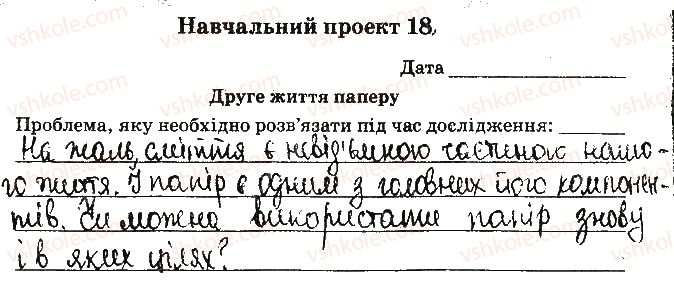 Навчальний проект 18.
Дата
Друге життя паперу
Проблема, яку необхідно розв'язати під час дослідження:
На жаль, сміття є невід'ємною частиною нашо-
го життя. І папір є одним з головних його компонен-
тів. Чи можна використати папір знову
і в яких цілях?
vshkole.com